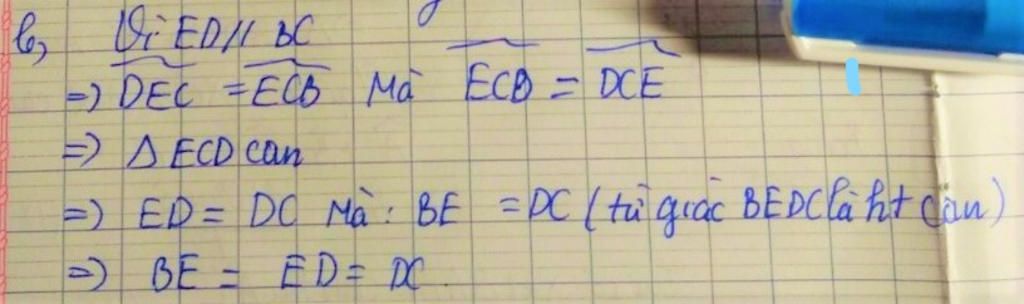 b, Vì ED // BC
=> \widehat{DEC} = \widehat{ECB} Mà \widehat{ECB} = \widehat{DCE}
=> Δ ECD cân
=> ED = DC Mà : BE = DC ( tứ giác BEDC là ht cân )
=> BE = ED = DC